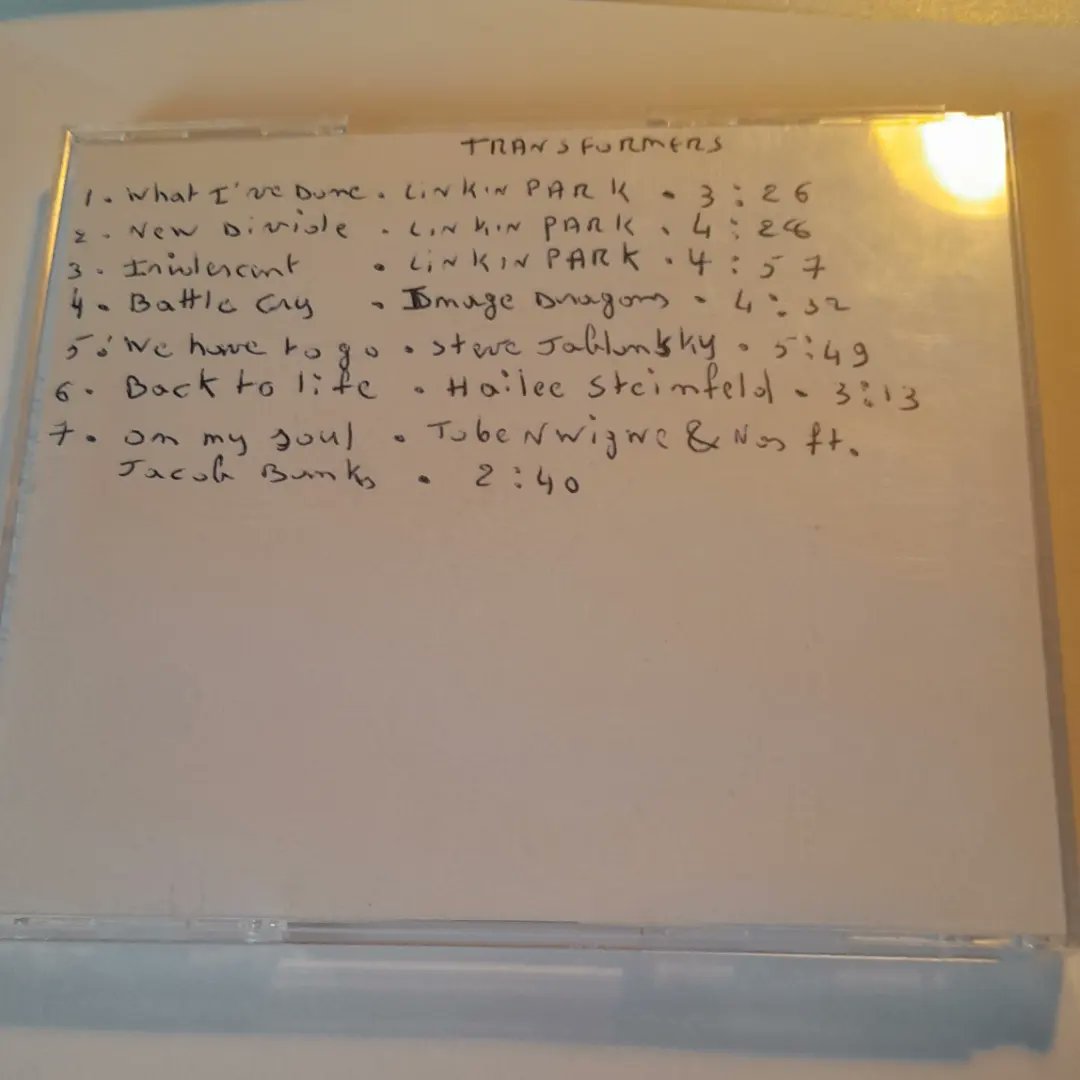 TRANSFORMERS
1. What I've Done. LINKIN PARK. 3:26
2. New Divide. LINKIN PARK. 4:28
3. Iridescent . LINKIN PARK. 4:57
4. Battle Cry . Image Dragons. 4:32
5. We have to go. Steve Jablonsky. 5:49
6. Back to life. Hailee Steimfeld. 3:13
7. on my soul. Tobe Nwigwe & Nas ft.
Jacob Banks. 2:40